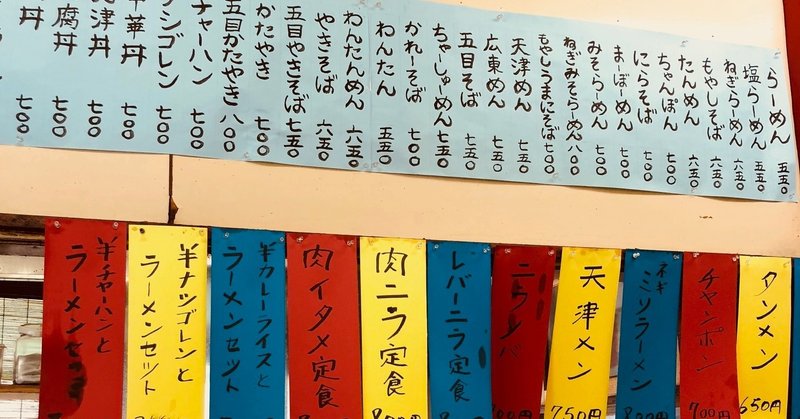 らーめん 五五〇
塩らーめん 五五〇
ねぎらーめん 六五〇
もやしそば 六五〇
たんめん 六五〇
ちゃんぽん 七〇〇
にらそば 七〇〇
まーぼーめん 七〇〇
みそらーめん 七〇〇
ねぎみそらーめん 八〇〇
もやしうまにそば 七〇〇
天津めん 七五〇
広東めん 七五〇
五目そば 七五〇
ちゃーしゅーめん 七五〇
かれーそば 七〇〇
わんたん 五五〇
わんたんめん 六五〇
やきそば 六五〇
五目やきそば 七五〇
かたやき 七〇〇
五目かたやき 八〇〇
チャーハン 七〇〇
ナシゴレン 七〇〇
中華丼 七〇〇
天津丼 七〇〇
腐丼 七〇〇
丼 七〇〇
タンメン
650円
チャンポン
700円
ネギ
ミソラーメン
天津メン
750円
ニラレバ
レバーニラ定食
肉ニラ定食
肉イタメ定食
半カレーライスと
ラーメンセット
半ナシゴレンと
ラーメンセット
半チャーハンと
ラーメンセット